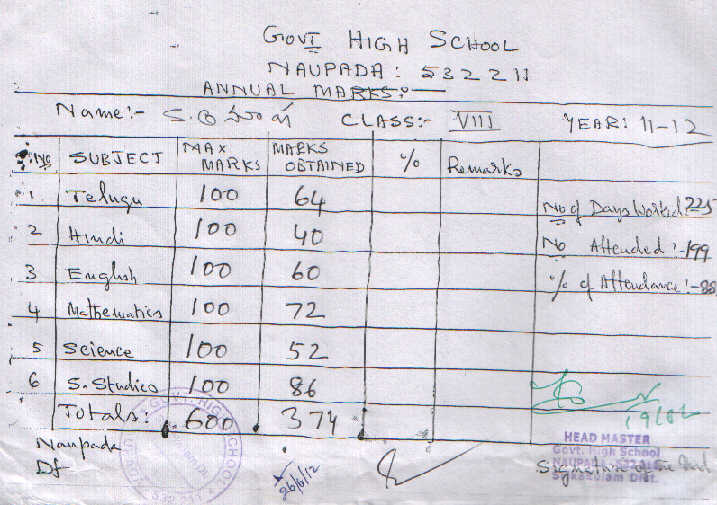 GOVT HIGH SCHOOL
NAUPADA: 532211
ANNUAL MARKS:
Name:- CLASS:- VIII YEAR: 11-12
S.NO SUBJECT MAX MARKS MARKS OBTAINED % Remarks
1 Telugu 100 64
No of Days Worked:-225
2 Hindi 100 40
No Attended:-199
3 English 100 60
% of Attendance:-88
4 Mathematics 100 72
5 Science 100 52
6 S. Studies 100 86
Totals: 600 374
Naupada
HEAD MASTER
Govt. High School
Dt 26/6/12 Signature of the
Srikakulam Dist.